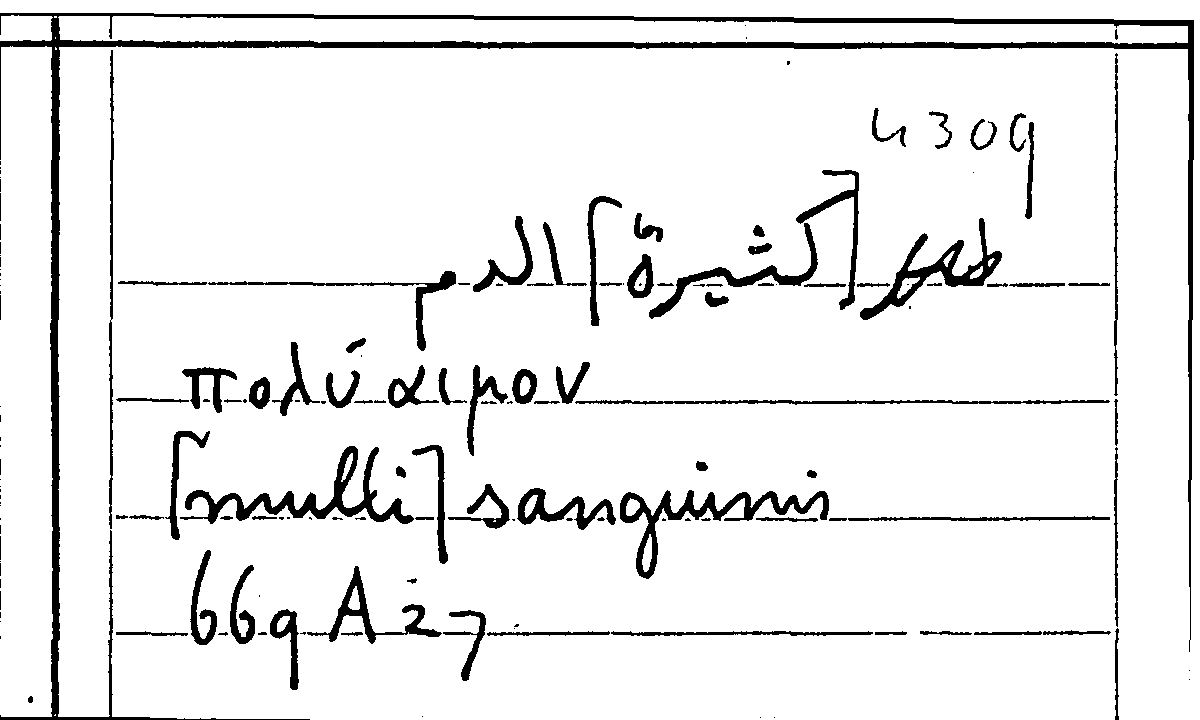 4309
[كثيرة] الدم
πολύαιμον
[multi] sanguinis
669 A 27